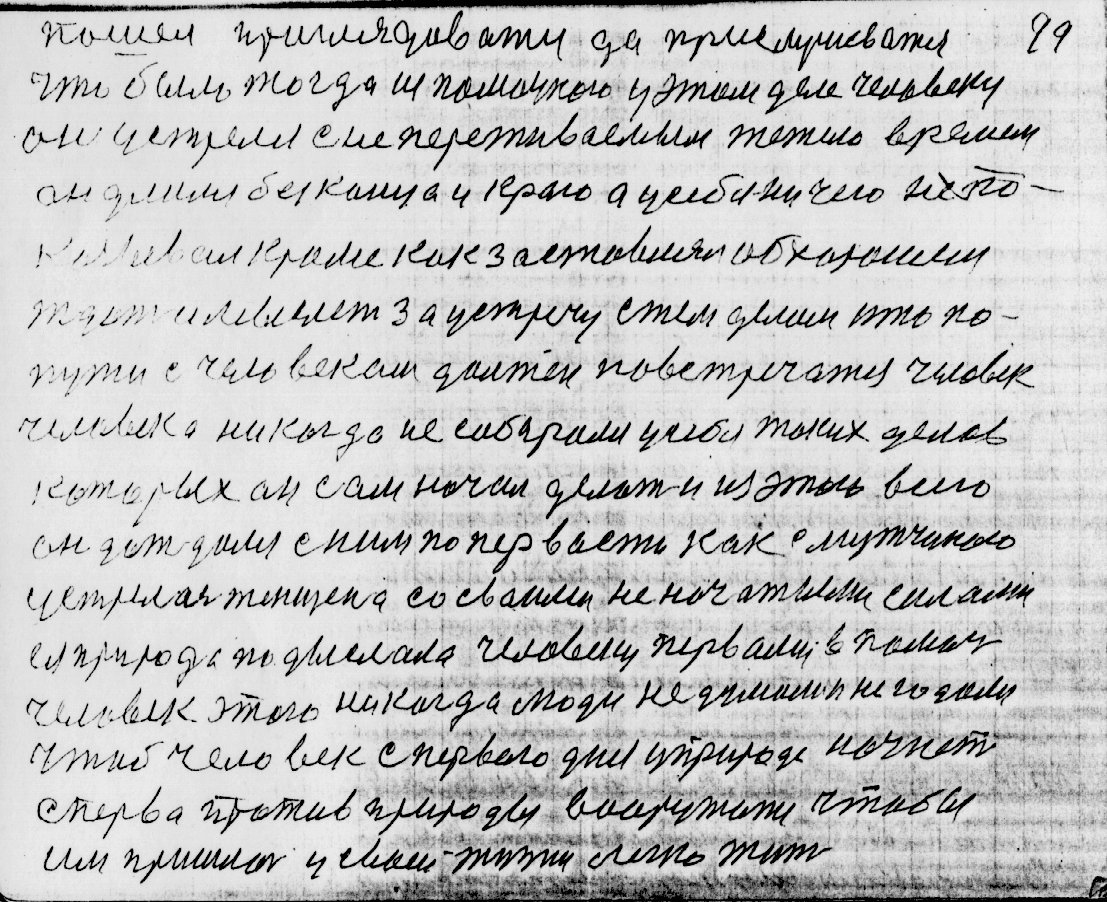 пошел приглядовати да прислушеватся 99
что было тогда и помочного у этом деле человеку
он устрелся с не переживаемым тежело время
он длился без конца и краю а у себя ничего не по-
казывал кроме как заставлял обхаронем
ждат и за устречу с тем делам што по-
пути с человекам должен повстречатся человек
человека никогда не собирали у себя таких делов
которых он сам начал делат и из этого всего
он дождался с ним по первости как с мужчиною
устрелая женщена со своими не початыми силами
ея природа подыслала человеку первому в помоч
человек этого никогда люди не думали и не годали
чтоб человек с первого дня у природе начнет
сперва против природы вооружати чтобы
им пришлос у своей жизни легко жит